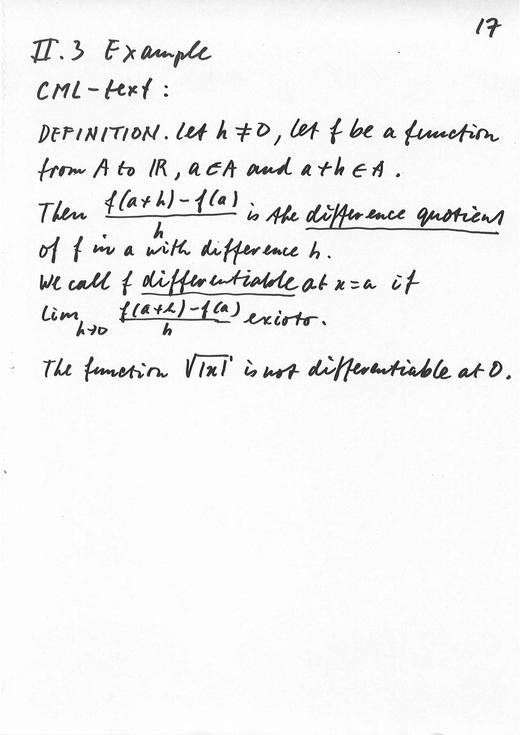 17
II.3 Example
CML-text:
DEFINITION. Let h ≠ 0, let f be a function
from A to IR, a ∈ A and a+h ∈ A.
Then (f(a+h) - f(a))/h is the difference quotient
of f in a with difference h.
We call f differentiable at x=a if
lim h→0 (f(a+h) - f(a))/h exists.
The function √|x| is not differentiable at 0.